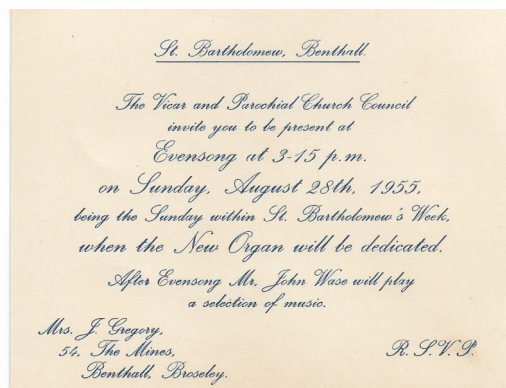 St. Bartholomew, Benthall.
The Vicar and Parochial Church Council
invite you to be present at
Evensong at 3-15 p.m.
on Sunday, August 28th, 1955,
being the Sunday within St. Bartholomew's Week,
when the New Organ will be dedicated.
After Evensong Mr. John Wase will play
a selection of music.
Mrs. J. Gregory,
54, The Mines,
Benthall, Broseley.
R.S.V.P.